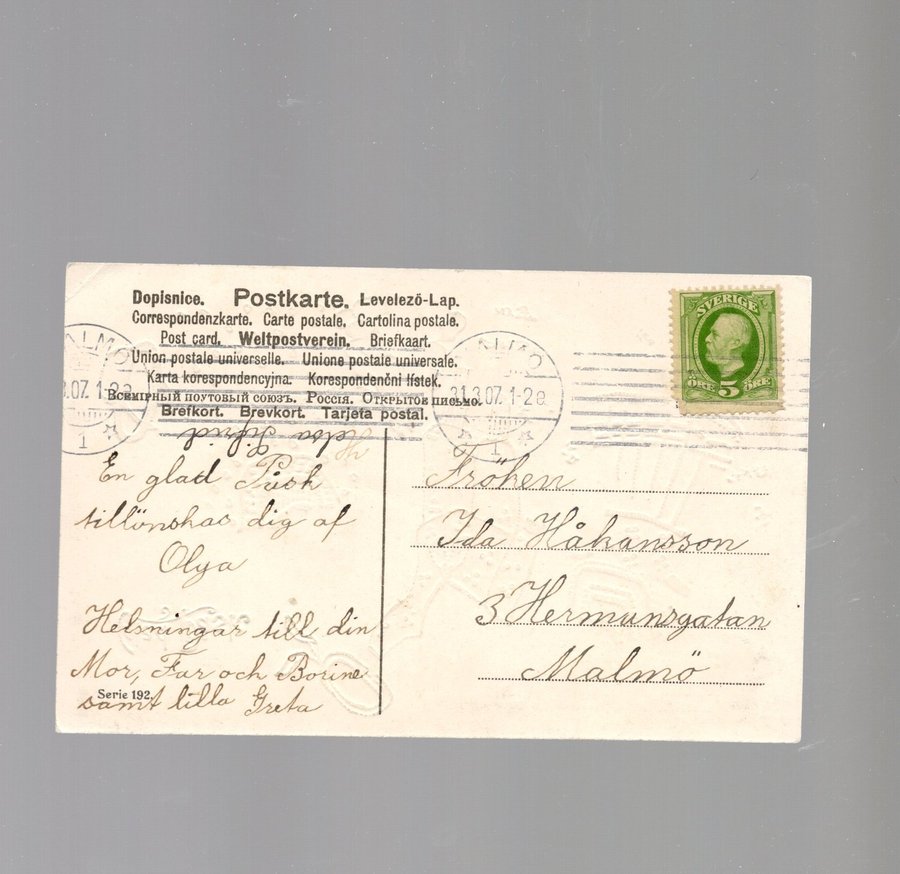 Dopisnice. Postkarte. Levelező-Lap.
Correspondenzkarte. Carte postale. Cartolina postale.
Post card. Weltpostverein. Briefkaart.
Union postale universelle. Unione postale universale.
Karta korespondencyjna. Korespondenční lístek.
Всемірный поутовый союзъ. Россія. Открытое письмо.
Brefkort. Brevkort. Tarjeta postal.
MALMÖ
3.07. 1-2 e
1
MALMÖ
31.3.07. 1-2 e
1
SVERIGE
ÖRE 5 ÖRE
Helsa Sigrid
En glad Påsk
tillönskas dig af
Olga
Helsningar till din
Mor, Far och
samt lilla Greta
Serie 192.
Fröken
Ida Håkansson
3 Hermunsgatan
Malmö